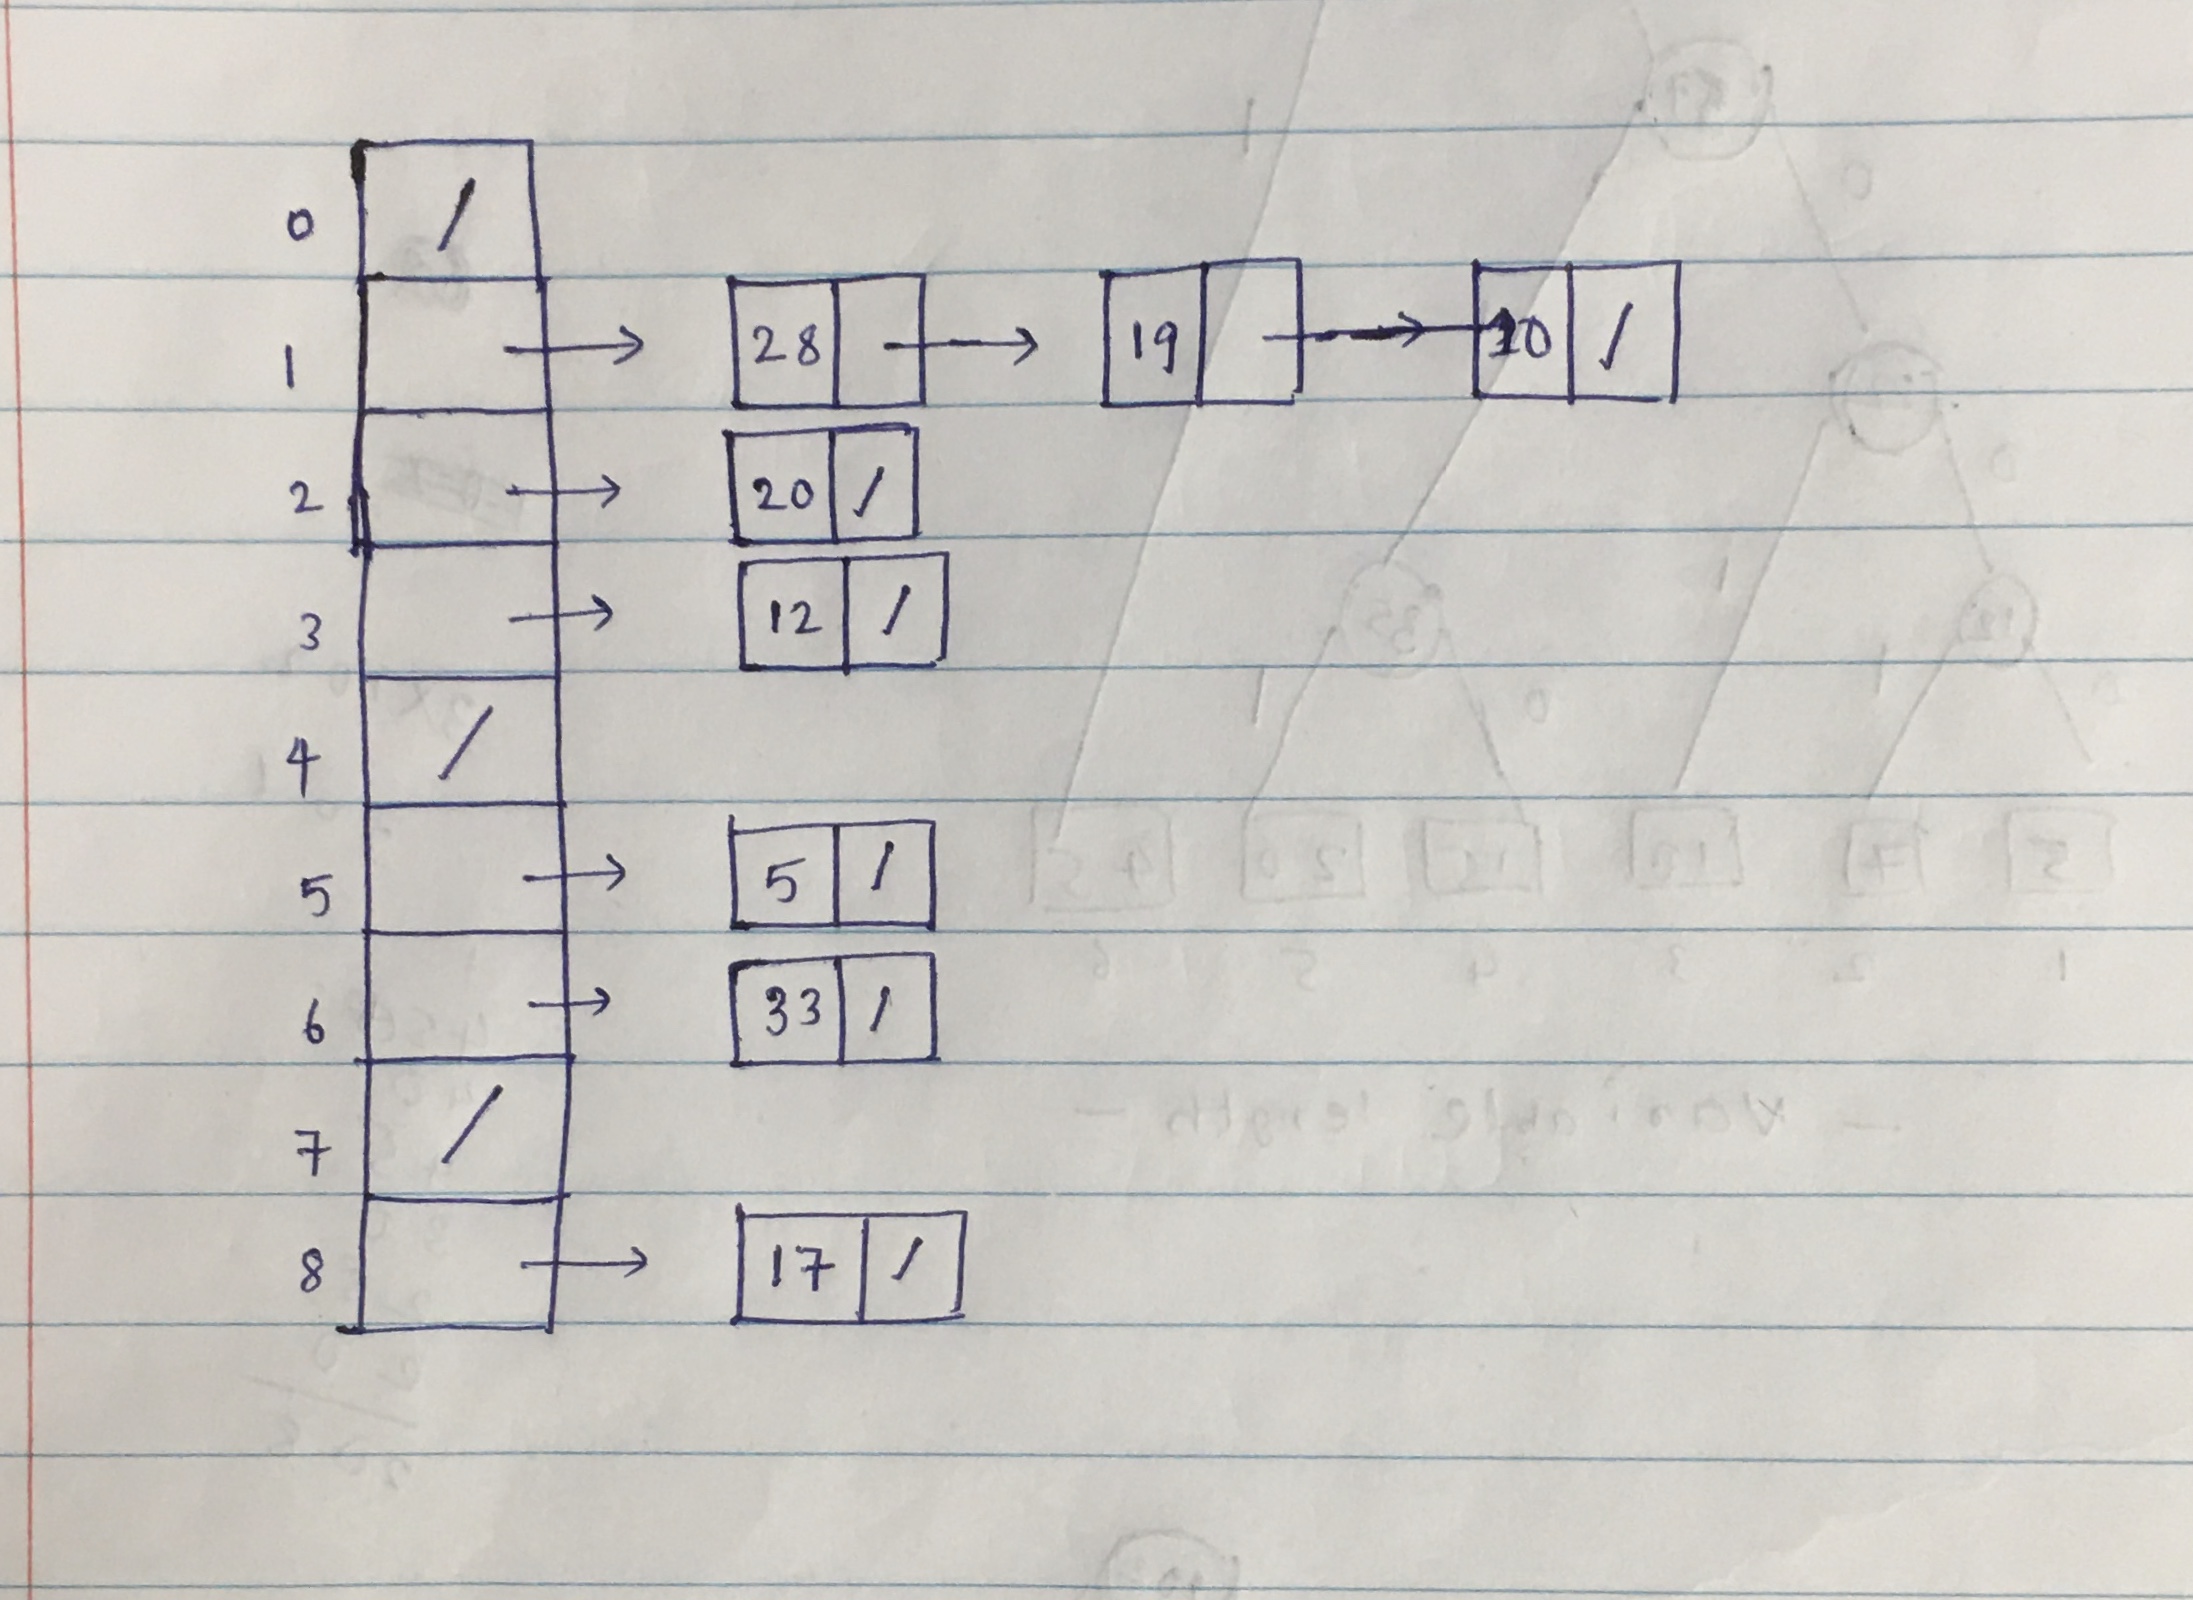 0 /
1 → 28 → 19 → 10 /
2 → 20 /
3 → 12 /
4 /
5 → 5 /
6 → 33 /
7 /
8 → 17 /